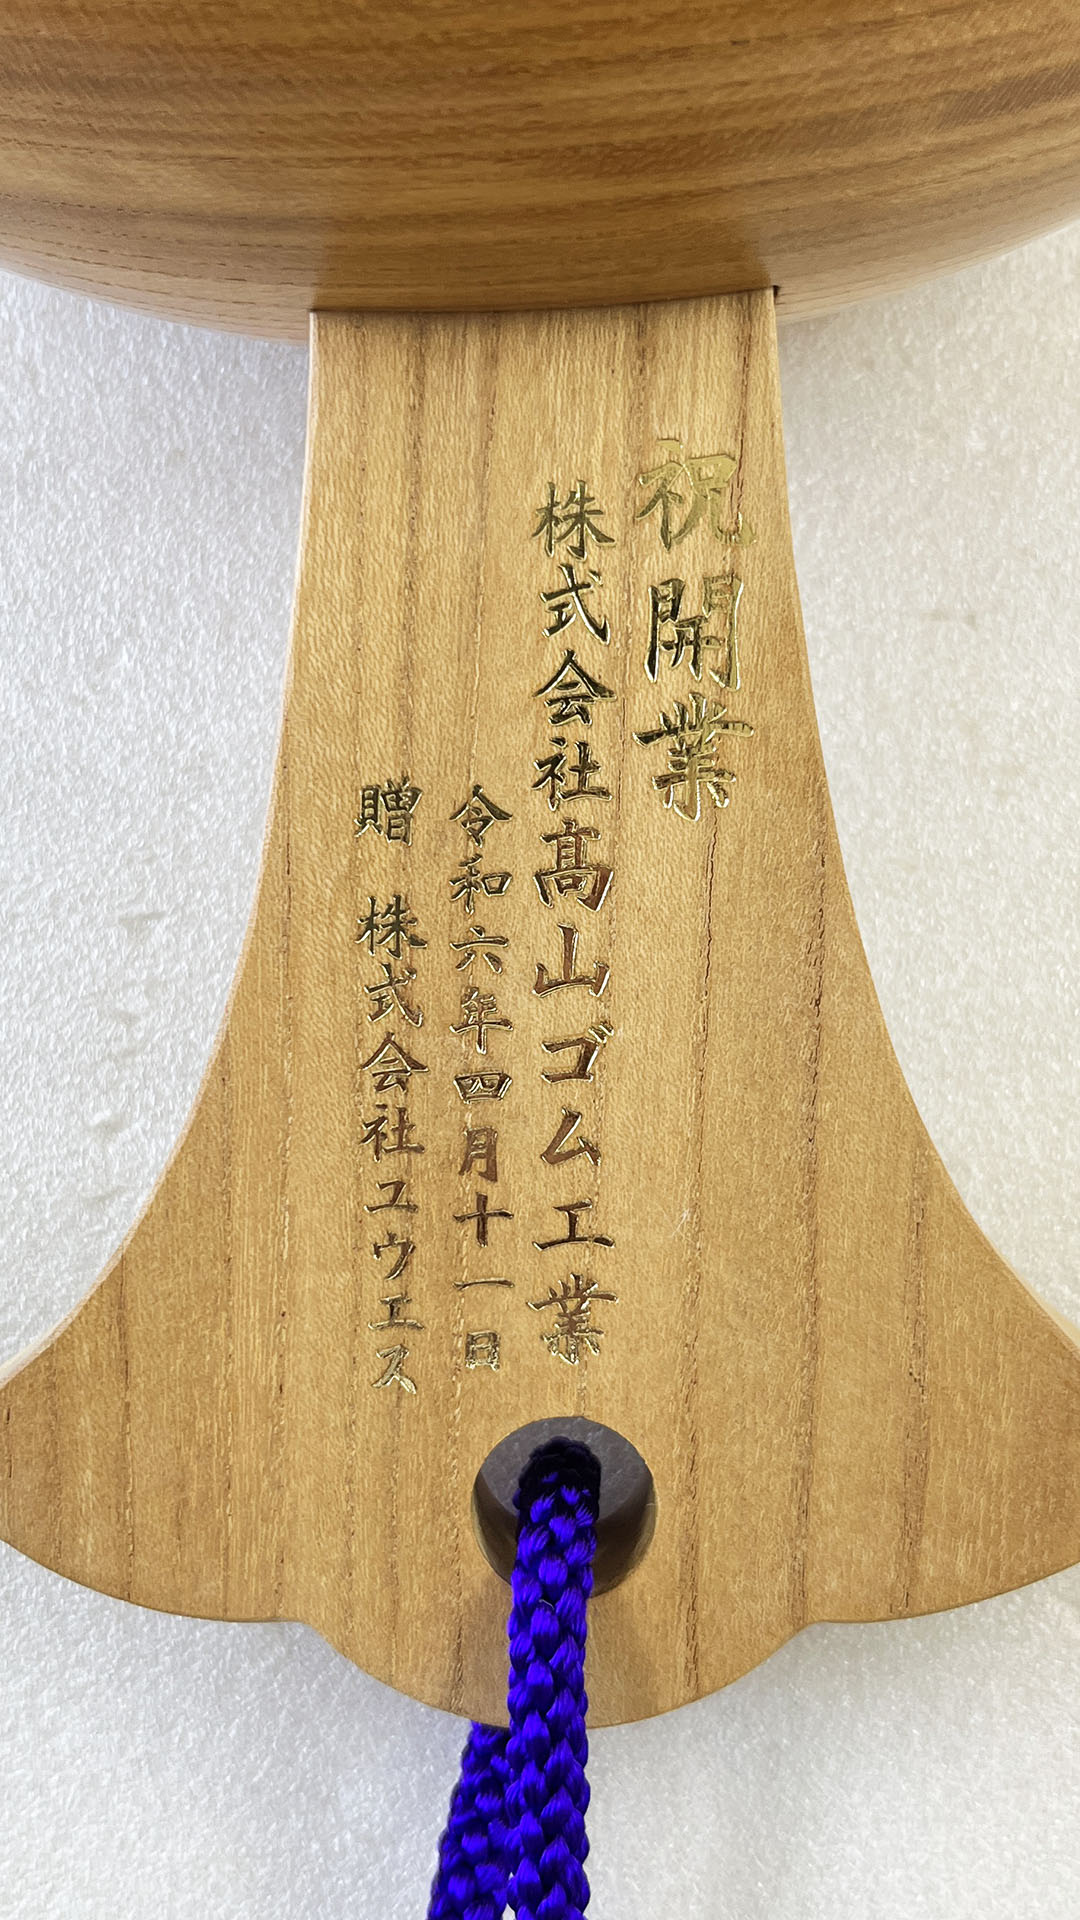 祝開業
株式会社髙山ゴム工業
令和六年四月十一日
贈 株式会社ユウエス